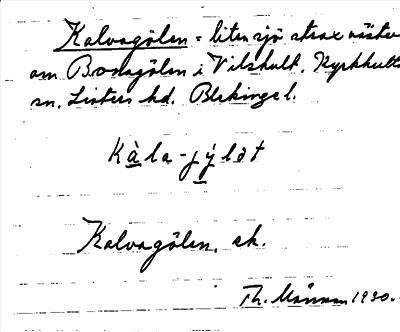 Kalvagölen = liten sjö strax väster
om Bronsgölen i Vilshult, Kyrkhults
sn. Listers hd. Blekinge l.
Kàla-jýlǝt
Kalvagölen, ek.
Th. 1930.